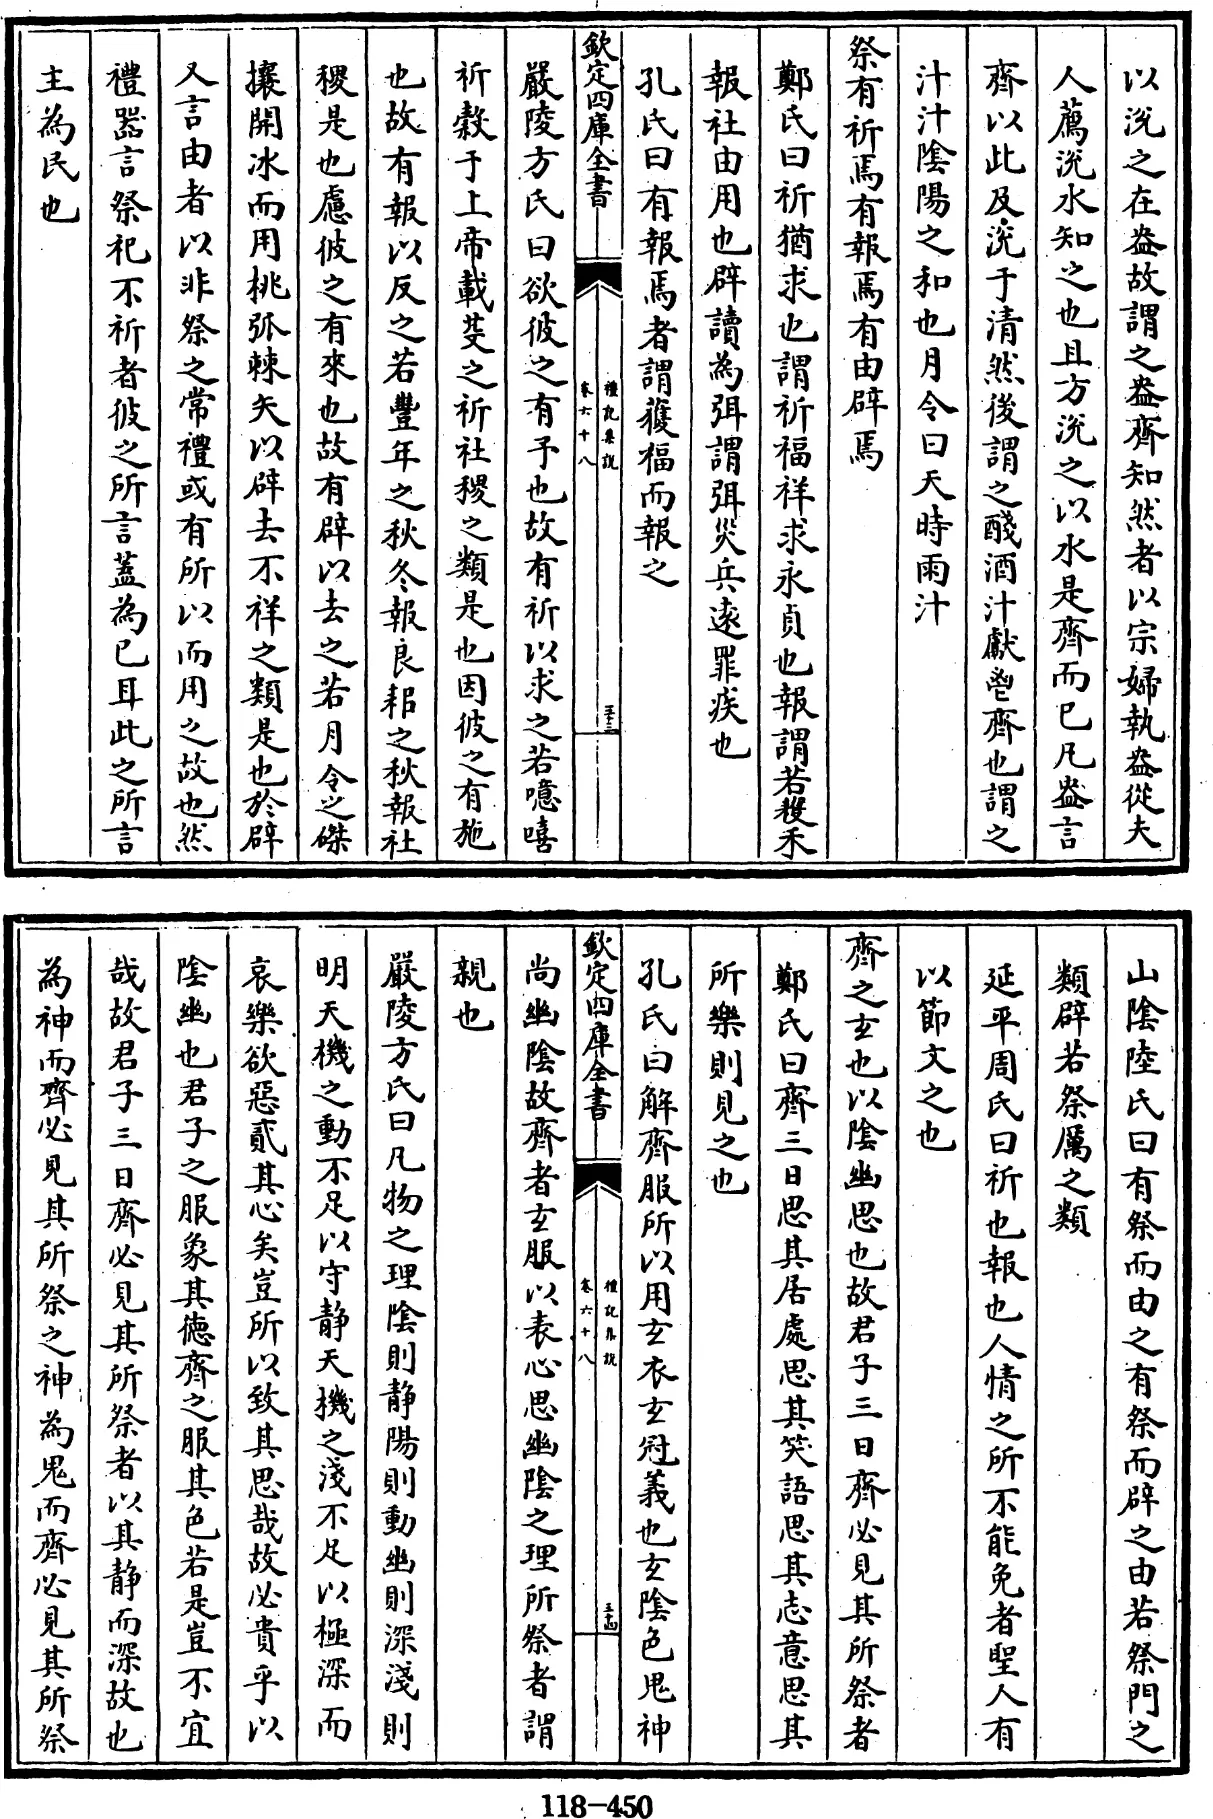 以涗之在盎故謂之盎齊知然者以宗婦執盎從夫
人薦涗水知之也且方涗之以水是齊而已凡盎言
齊以此及涗于清然後謂之醆酒汁獻鬯齊也謂之
汁汁陰陽之和也月令曰天時雨汁
祭有祈焉有報焉有由辟焉
鄭氏曰祈猶求也謂祈福祥求永貞也報謂若穫禾
報社由用也辟讀為弭謂弭災兵逺罪疾也
孔氏曰有報焉者謂獲福而報之
欽定四庫全書
禮記集說
卷六十八
三十三
嚴陵方氏曰欲彼之有予也故有祈以求之若噫嘻
祈穀于上帝載芟之祈社稷之類是也因彼之有施
也故有報以反之若豐年之秋冬報良耜之秋報社
稷是也慮彼之有來也故有辟以去之若月令之磔
攘開冰而用桃弧棘矢以辟去不祥之類是也於辟
又言由者以非祭之常禮或有所以而用之故也然
禮器言祭祀不祈者彼之所言蓋為已耳此之所言
主為民也
山陰陸氏曰有祭而由之有祭而辟之由若祭門之
類辟若祭厲之類
延平周氏曰祈也報也人情之所不能免者聖人有
以節文之也
齊之玄也以陰幽思也故君子三日齊必見其所祭者
鄭氏曰齊三日思其居處思其笑語思其志意思其
所樂則見之也
孔氏曰解齊服所以用玄衣玄冠義也玄陰色鬼神
欽定四庫全書
禮記集說
卷六十八
三十四
尚幽陰故齊者玄服以表心思幽陰之理所祭者謂
親也
嚴陵方氏曰凡物之理陰則靜陽則動幽則深淺則
明天機之動不足以守靜天機之淺不足以極深而
哀樂欲惡貳其心矣豈所以致其思哉故必貴乎以
陰幽也君子之服象其徳齊之服其色若是豈不宜
哉故君子三日齊必見其所祭者以其靜而深故也
為神而齊必見其所祭之神為鬼而齊必見其所祭
118-450